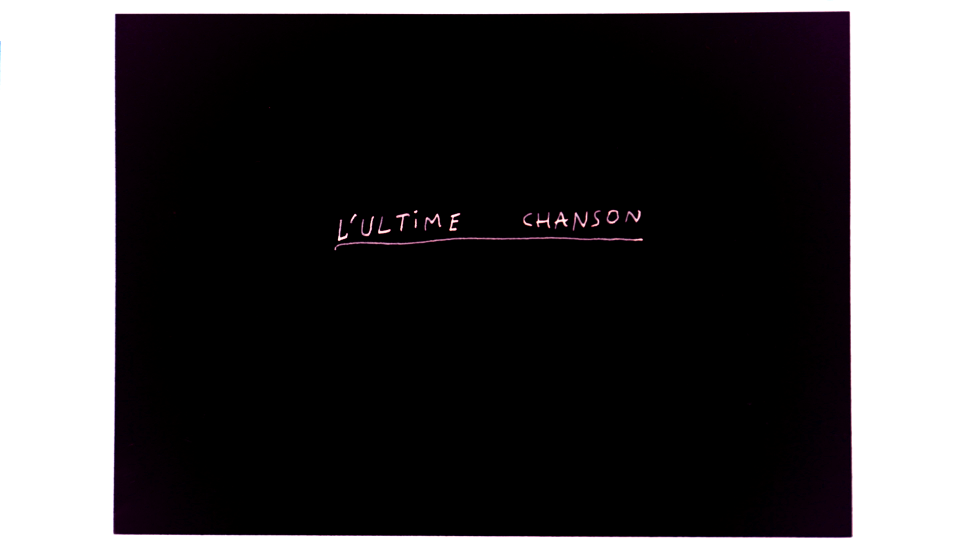 L'ULTiME CHANSON